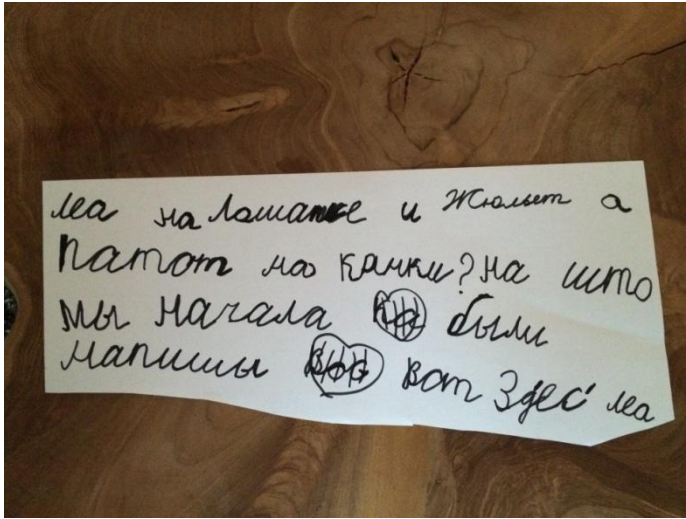 леа на лошатке и Жюльет а
патот на качки? на што
мы начала были
напишы вот здес' леа